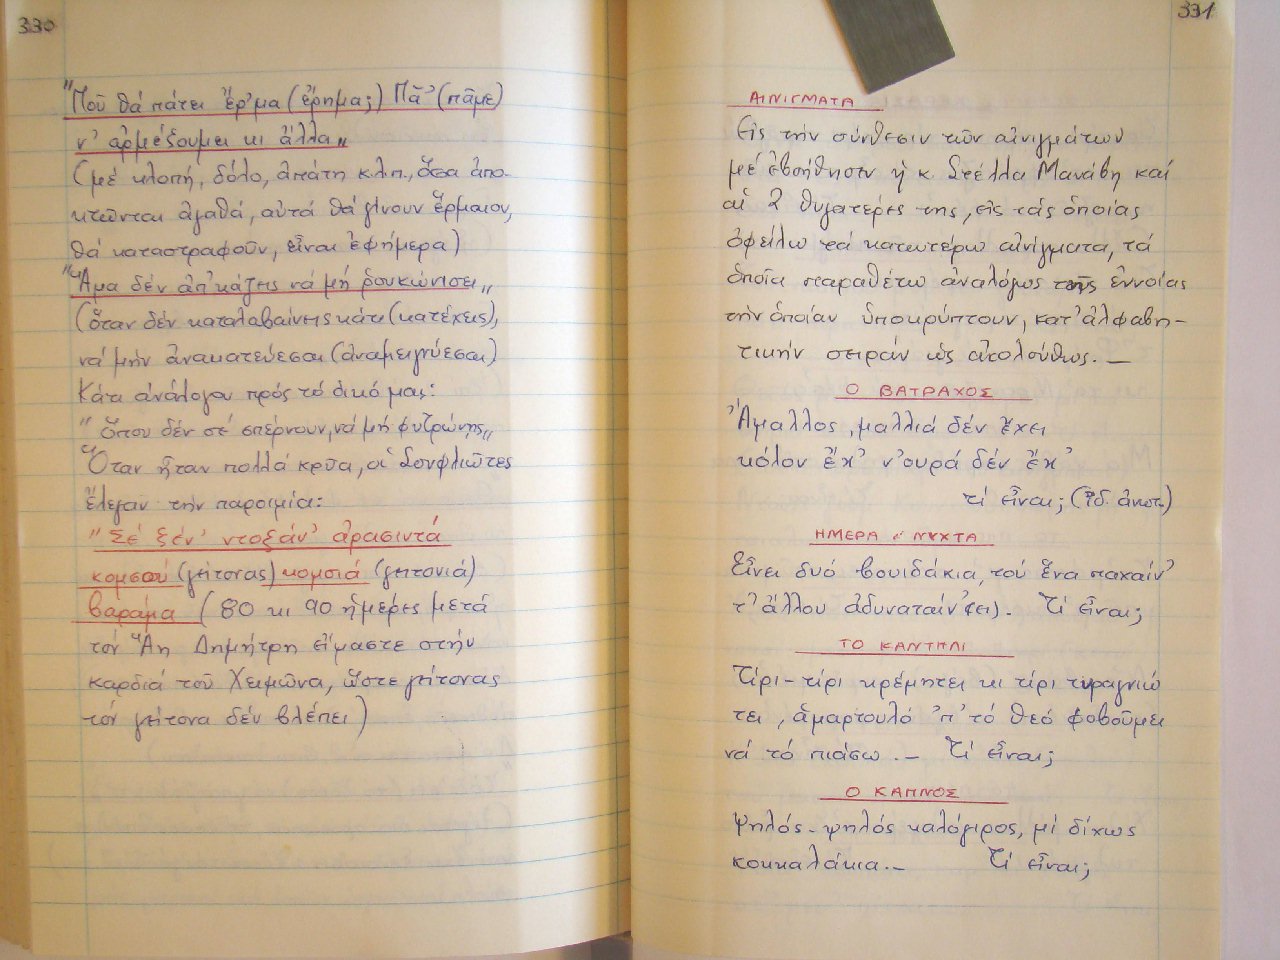 330
"Ποῦ θά πάτει ἔρ'μα (ἔρημα;) Πᾶ' (πᾶμε)
ν' ἀρμέξουμει κι ἄλλα"
(μέ κλοπή, δόλο, ἀπάτη κ.λ.π., ὅσα ἀπο-
κτῶνται ἀγαθά, αὐτά θά γίνουν ἕρμαιον,
θά καταστραφοῦν, εἶναι ἐφήμερα)
"Ἅμα δέν ἀπ'κάζης νά μή βουκώνσει"
(ὅταν δέν καταλαβαίνεις κάτι (κατέχεις),
νά μήν ἀνακατεύεσαι (ἀναμειγνύεσαι)
Κάτι ἀνάλογον πρός τό δικό μας:
"ὅπου δέν σέ σπέρνουν, νά μή φυτρώνης"
Ὅταν ἦταν πολλά κρῦα, οἱ Σουφλιῶτες
ἔλεγαν τήν παροιμία:
"Σέ ξέν' ντοξάν' ἀρασιντά
κομσού (γείτονας) κομσιά (γειτονιά)
βαράμα (80 κι 90 ἡμέρες μετά
τόν Ἅη Δημήτρη εἴμαστε στήν
καρδιά τοῦ Χειμῶνα, ὥστε γείτονας
τόν γείτονα δέν βλέπει)
331
ΑΙΝΙΓΜΑΤΑ
Εἰς τήν σύνθεσιν τῶν αἰνιγμάτων
μέ ἐβοήθησεν ἡ κ. Στέλλα Μανάβη καί
αἱ 2 θυγατέρες της, εἰς τάς ὁποίας
ὀφείλω τά κατωτέρω αἰνίγματα, τά
ὁποῖα παραθέτω ἀναλόγως τῆς ἐννοίας
τήν ὁποίαν ὑποκρύπτουν, κατ' ἀλφαβη-
τικήν σειράν ὡς ἀκολούθως. –
Ο ΒΑΤΡΑΧΟΣ
Ἄμαλλος, μαλλιά δέν ἔχει
κόλον ἔχ' ν'ουρά δέν ἔχ'
τί εἶναι;
ΗΜΕΡΑ ΝΥΧΤΑ
Εἶνει δυό βουιδάκια, τού ἕνα παχαίν'
τ' ἄλλου ἀδυναταίν'(ει). Τί εἶναι;
ΤΟ ΚΑΝΤΗΛΙ
Τίρι-τίρι κρέμητει κι τίρι τυραγνιώ
τει, ἁμαρτουλό 'π' τό θεό φοβοῦμει
νά τό πιάσω. – Τί εἶναι;
Ο ΚΑΠΝΟΣ
Ψηλός-ψηλός καλόγιρος, μί δίχως
κοκκαλάκια. – Τί εἶναι;